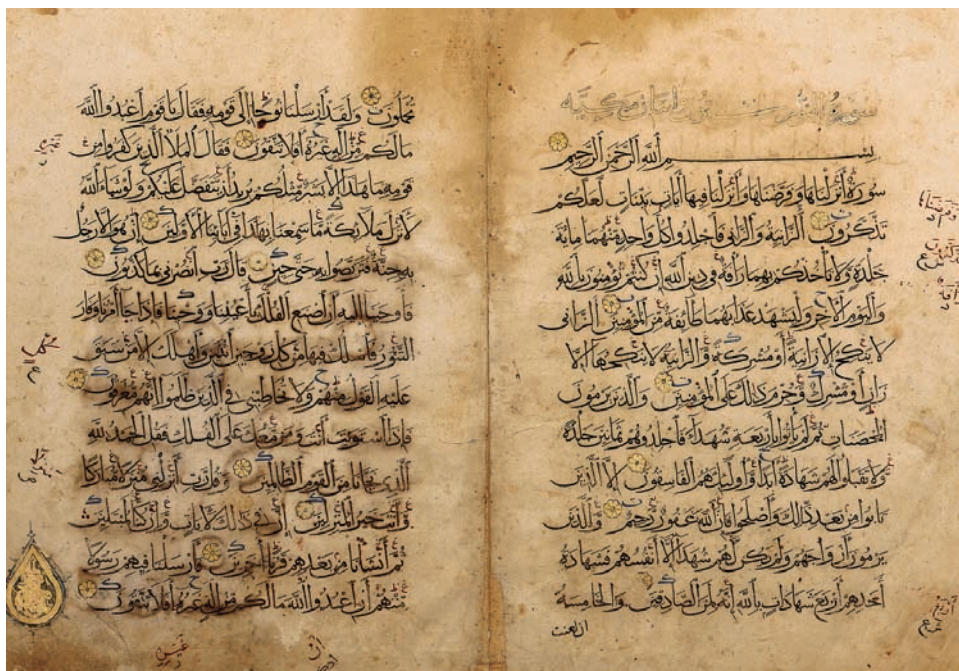 سورة النور
بسم الله الرحمن الرحيم
سورة أنزلناها وفرضناها وأنزلنا فيها آيات بينات لعلكم
تذكرون الزانية والزاني فاجلدوا كل واحد منهما مائة
جلدة ولا تأخذكم بهما رأفة في دين الله إن كنتم تؤمنون بالله
واليوم الآخر وليشهد عذابهما طائفة من المؤمنين الزاني
لا ينكح إلا زانية أو مشركة والزانية لا ينكحها إلا
زان أو مشرك وحرم ذالك على المؤمنين والذين يرمون
المحصنات ثم لم يأتوا بأربعة شهداء فاجلدوهم ثمانين جلدة
ولا تقبلوا لهم شهادة أبدا وأولئك هم الفاسقون إلا الذين
تابوا من بعد ذالك وأصلحوا فإن الله غفور رحيم والذين
يرمون أزواجهم ولم يكن لهم شهداء إلا أنفسهم فشهادة
أحدهم أربع شهادات بالله إنه لمن الصادقين والخامسة
ان لعنت
تحملون ولقد أرسلنا نوحا إلى قومه فقال يا قوم اعبدوا الله
مالكم من إله غيره أفلا تتقون فقال الملأ الذين كفروا من
قومه ما هذا إلا بشر مثلكم يريد أن يتفضل عليكم ولو شاء الله
لأنزل ملائكة ما سمعنا بهذا في آبائنا الأولين إن هو إلا رجل
به جنة فتربصوا به حتى حين قال رب انصرني بما كذبون
فأوحينا إليه أن اصنع الفلك بأعيننا ووحينا فإذا جاء أمرنا وفار
التنور فاسلك فيها من كل زوجين اثنين وأهلك إلا من سبق
عليه القول منهم ولا تخاطبني في الذين ظلموا إنهم مغرقون
فإذا استويت أنت ومن معك على الفلك فقل الحمد لله
الذي نجانا من القوم الظالمين وقل رب أنزلني منزلا مباركا
وأنت خير المنزلين إن في ذالك لآيات وإن كنا لمبتلين
ثم أنشأنا من بعدهم قرنا آخرين فأرسلنا فيهم رسولا
منهم أن اعبدوا الله مالكم من إله غيره أفلا تتقون